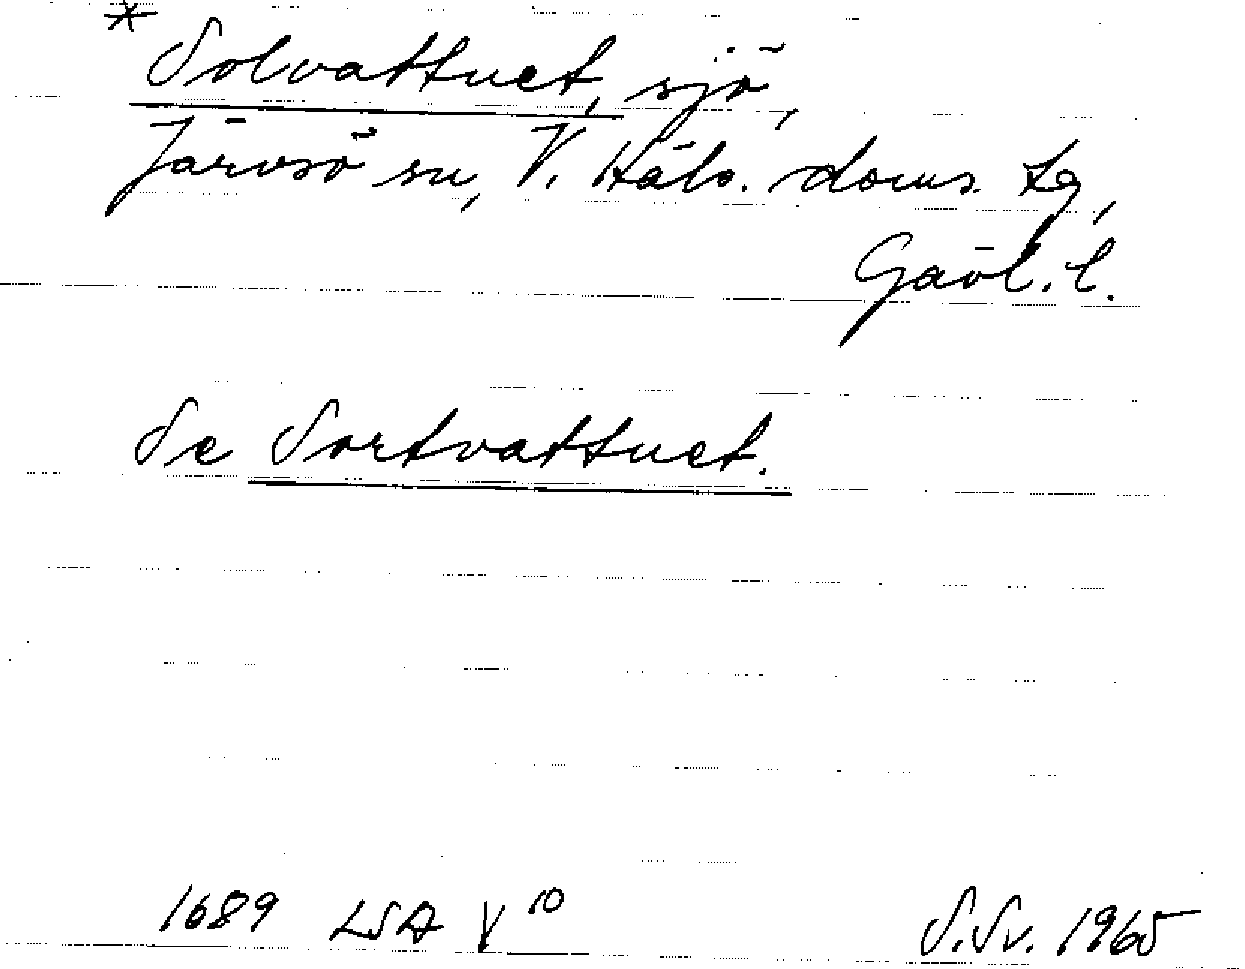 * Solvattnet, sjö,
Järvsö sn, V. Häls. doms. tg,
Gävl. l.
Se Sortvattnet.
1689 LSA V 10 S.Sv. 1965